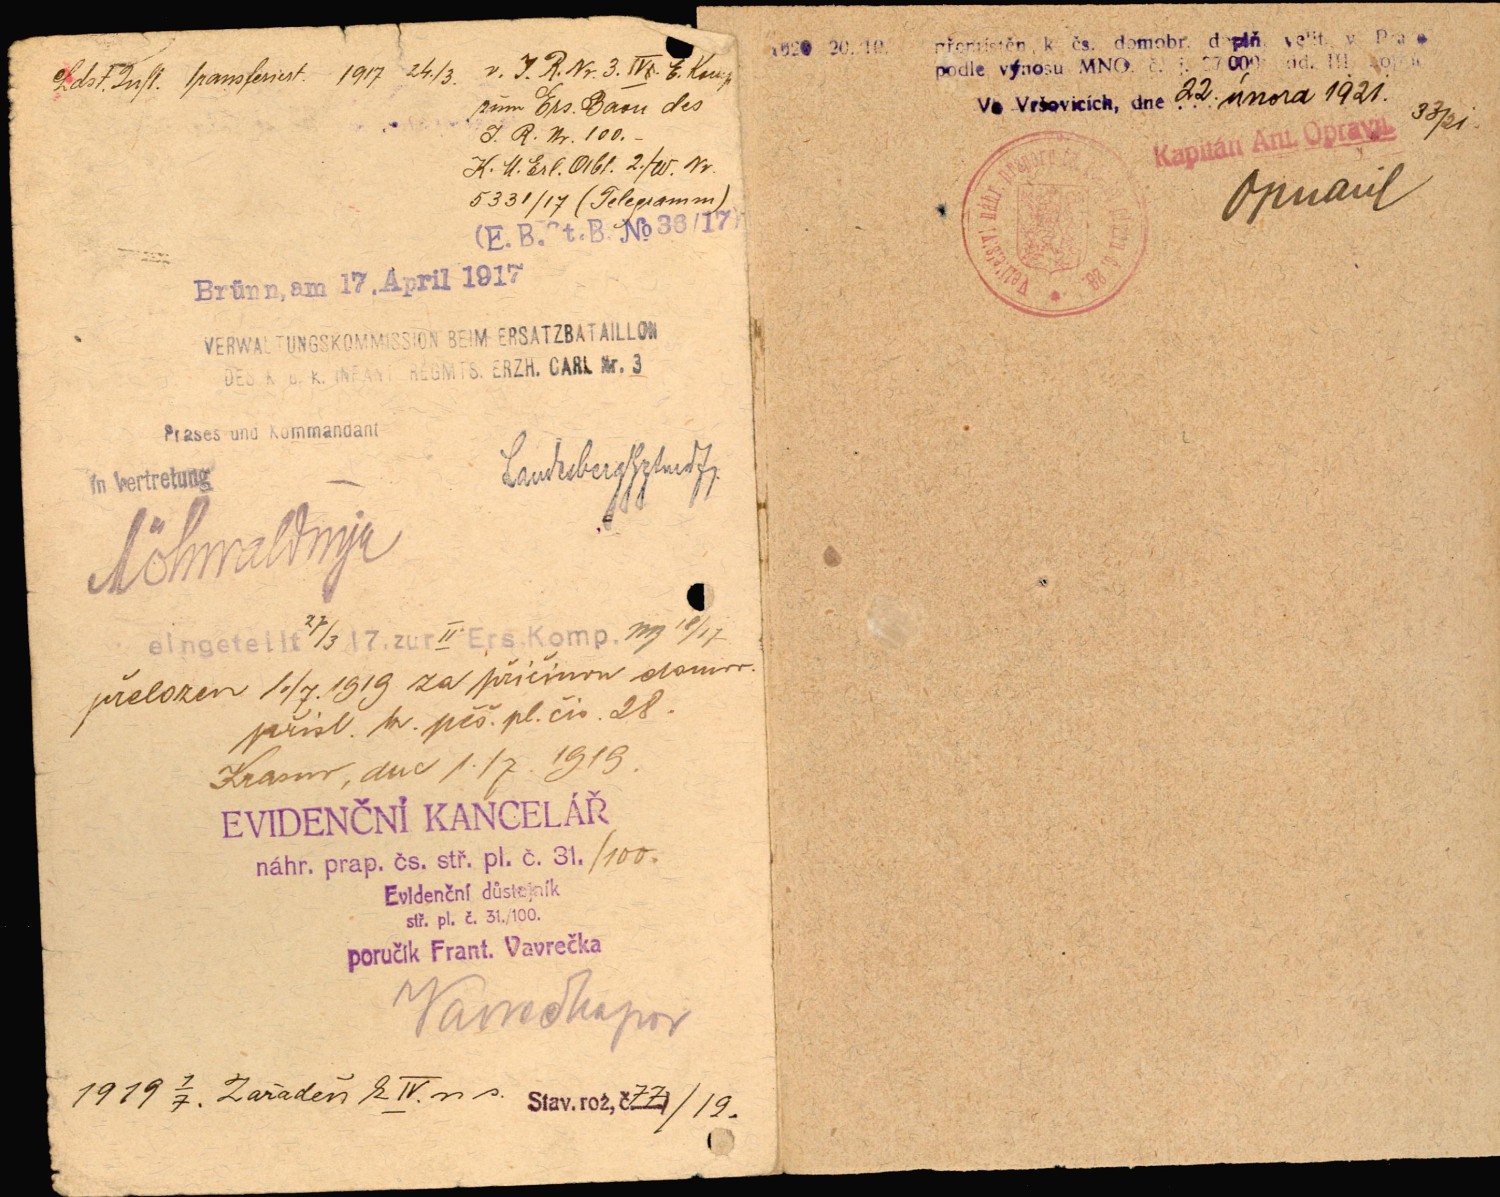 Ldst. Inft. transferiert. 1917 24/3. v. I. R. Nr. 3. IV. E. Komp
zum Ers. Baon des
I. R. Nr. 100.-
K. M. Erl. Abt. 2./W. Nr.
5331/17 (Telegramm)
(E. B. St. B. No 36/17)
Brünn, am 17. April 1917
VERWALTUNGSKOMMISSION BEIM ERSATZBATAILLON
DES K. u. k. INFANT. REGMTS. ERZH. CARL Nr. 3
Präses und Kommandant
in Vertretung
Landesberg
eingeteilt 27/3 17. zur II Ers. Komp. 18/17
přeložen 1./7. 1919 za příčinou domov.
přísl. k. pěš. pl. čís. 28.
Krasno, dne 1./7. 1919.
EVIDENČNÍ KANCELÁŘ
náhr. prap. čs. stř. pl. č. 31./100.
Evidenční důstojník
stř. pl. č. 31./100.
poručík Frant. Vavrečka
Vavrečka por
1919 1/7. Zařaděn k IV. n. s. Stav. roz, č. 77/19.
1920 20. 10. přemístěn k čs. domobr. dopln. velit. v Pra
podle výnosu MNO. č. j. 37.000
Ve Vršovicích, dne 22. února 1921.
33/21.
Kapitán Ant. Opravil
Opravil